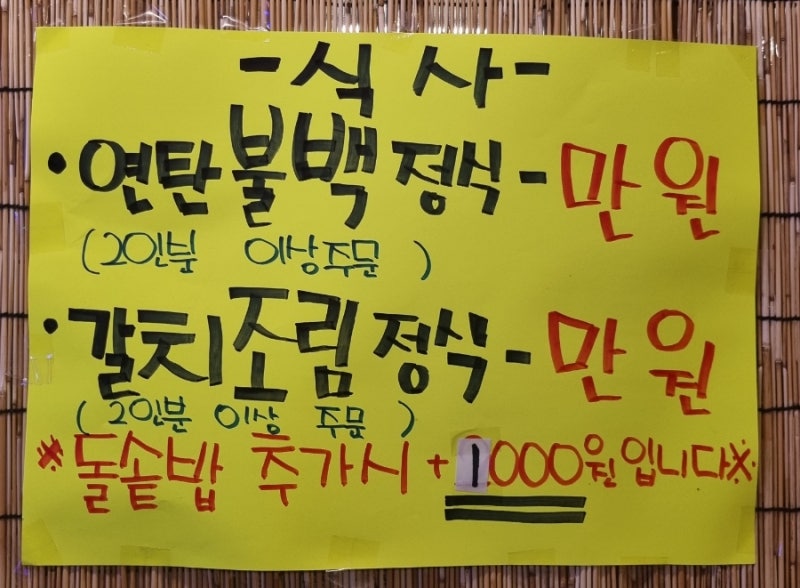 -식사-
·연탄불백정식-만원
(2인분 이상주문)
·갈치조림정식-만원
(2인분 이상 주문)
※돌솥밥 추가시+1,000원입니다※